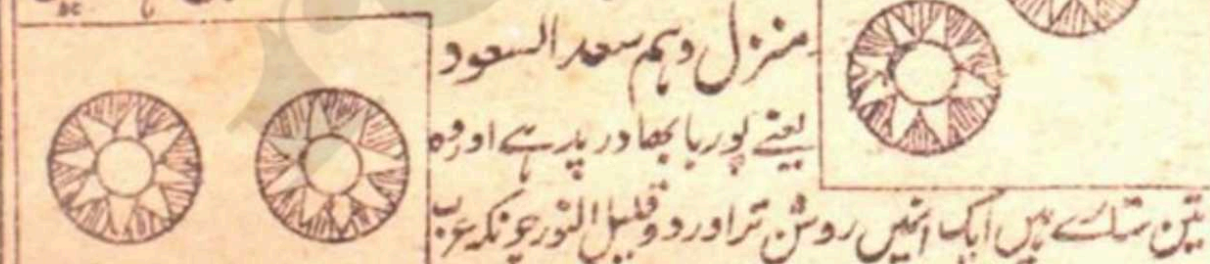 منزل دہم سعد السعود
یعنے پوربا بھادرپد ہے اور وہ
تین ستارے ہیں ایک انمیں روشن تر اور دو قلیل النور چونکہ عرب